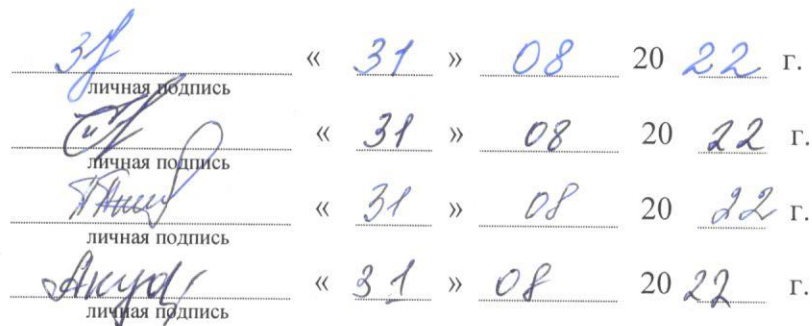 « 31 » 08 20 22 г.
личная подпись
« 31 » 08 20 22 г.
личная подпись
« 31 » 08 20 22 г.
личная подпись
« 31 » 08 20 22 г.
личная подпись